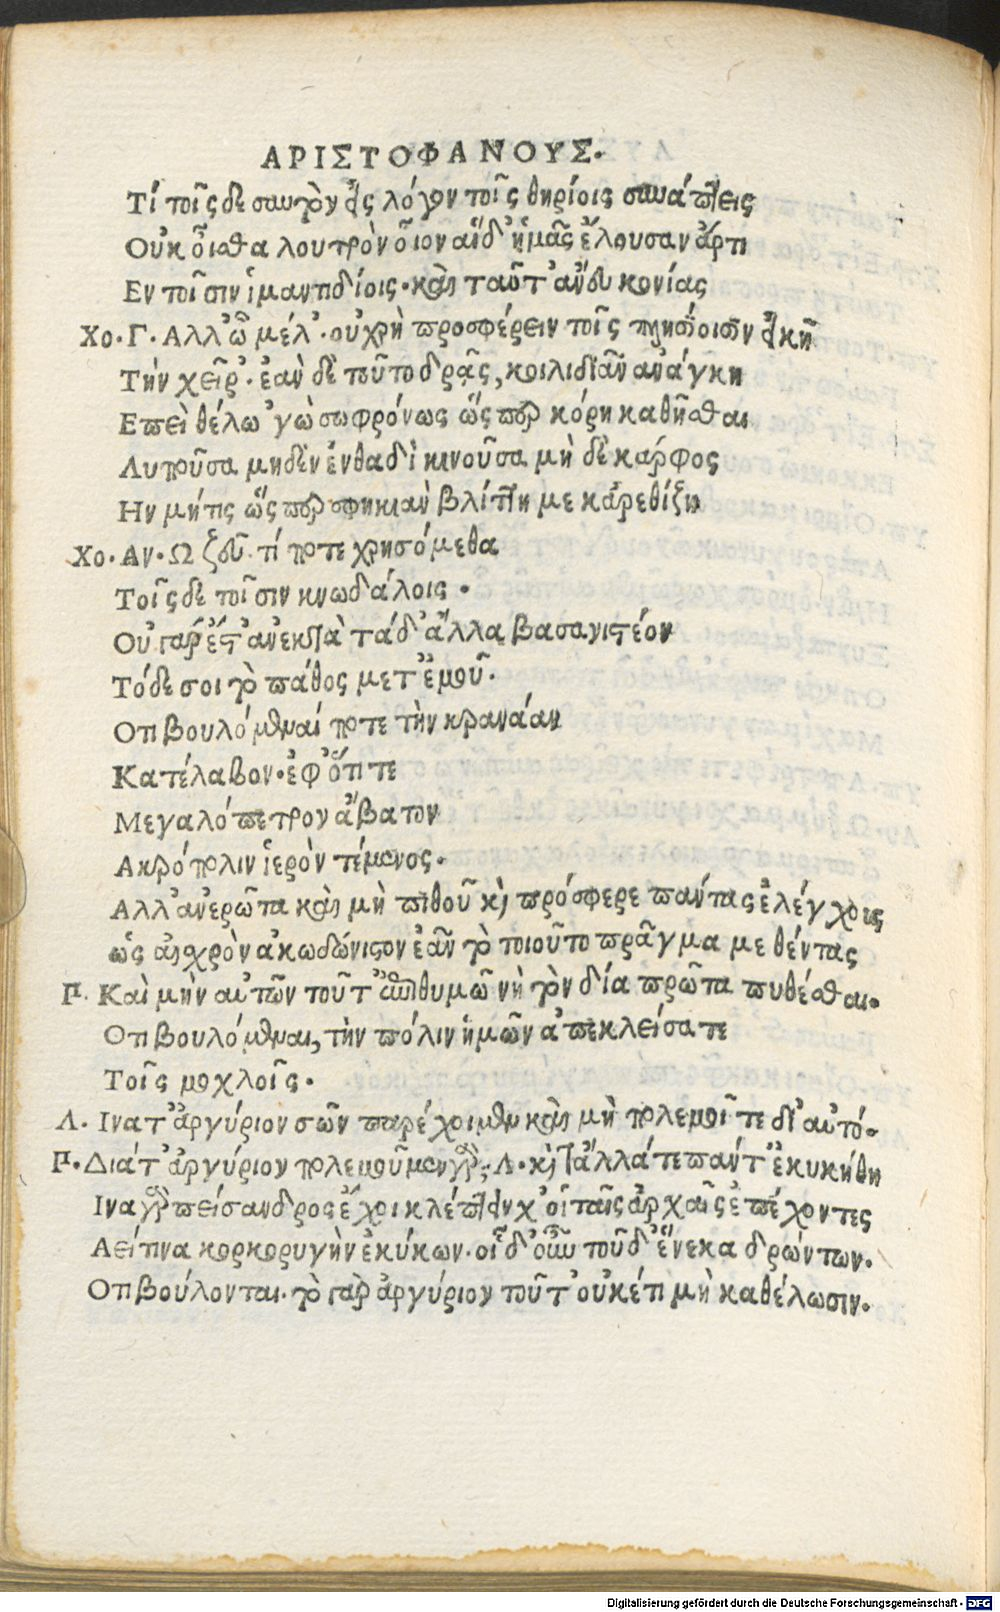 ΑΡΙΣΤΟΦΑΝΟΥΣ.
Τί τοῖς δε σαυτὸν εἰς λόγον τοῖς θηρίοις συνάπτεις
Οὐκ οἶσθα λουτρὸν οἷον αἵδ' ἡμᾶς ἔλουσαν ἄρτι
Εν τοῖσιν ἱματιδίοις. καὶ ταῦτ' ἄνευ κονίας
Χο. Γ. Αλλ' ὦ μέλ'. οὐ χρὴ προσφέρειν τοῖς πλησίοισιν εἰκῆ
Τὴν χεῖρ'. ἐὰν δὲ τοῦτο δρᾷς, κοιλιδιᾶν ἀνάγκη
Επεὶ θέλω 'γὼ σωφρόνως ὥσπερ κόρη καθῆσθαι
Λυποῦσα μηδὲν ἐνθαδὶ κινοῦσα μὴ δὲ κάρφος
Ην μήτις ὥσπερ σφηκιὰν βλίττη με κᾀρεθίζη
Χο. Αν. Ω ζεῦ. τί ποτε χρησόμεθα
Τοῖς δε τοῖσιν κνωδάλοις.
Οὐ γὰρ ἔστ' ἀνεκτὰ τάδ' ἄλλα βασανιστέον
Τόδε σοι τὸ πάθος μετ' ἐμοῦ.
Οτι βουλόμεναί ποτε τὴν κραναάν
Κατέλαβον. ἐφ' ὅτι τε
Μεγαλόπετρον ἄβατον
Ακρόπολιν ἱερὸν τέμενος.
Αλλ' ἀνερῶτα καὶ μὴ πιθοῦ καὶ πρόσφερε πάντας ἐλέγχοις
ὡς αἰσχρὸν ἀκωδώνιστον ἐᾶν τὸ τοιοῦτο πρᾶγμα με θέντας
Π. Καὶ μὴν αὐτῶν τοῦτ' ἐπιθυμῶ νὴ τὸν δία πρῶτα πυθέσθαι.
Οτι βουλόμεναι, τὴν πόλιν ἡμῶν ἀπεκλείσατε
Τοῖς μοχλοῖς.
Λ. Ινα τ' ἀργύριον σῶν παρέχοιμεν καὶ μὴ πολεμοῖτε δι' αὐτό.
Π. Διά τ' ἀργύριον πολεμοῦμεν γάρ; Λ. καὶ τἄλλά τε πάντ' ἐκυκήθη
Ινα γὰρ πείσανδρος ἔχοι κλέπτειν χ' οἱ ταῖς ἀρχαῖς ἐπέχοντες
Αεί τινα κορκορυγὴν ἐκύκων. οἷ δ' οὖν τοῦδ' ἕνεκα δρώντων.
Οτι βούλονται. τὸ γὰρ ἀργύριον τοῦτ' οὐκέτι μὴ καθέλωσιν.
Digitalisierung gefördert durch die Deutsche Forschungsgemeinschaft - DFG